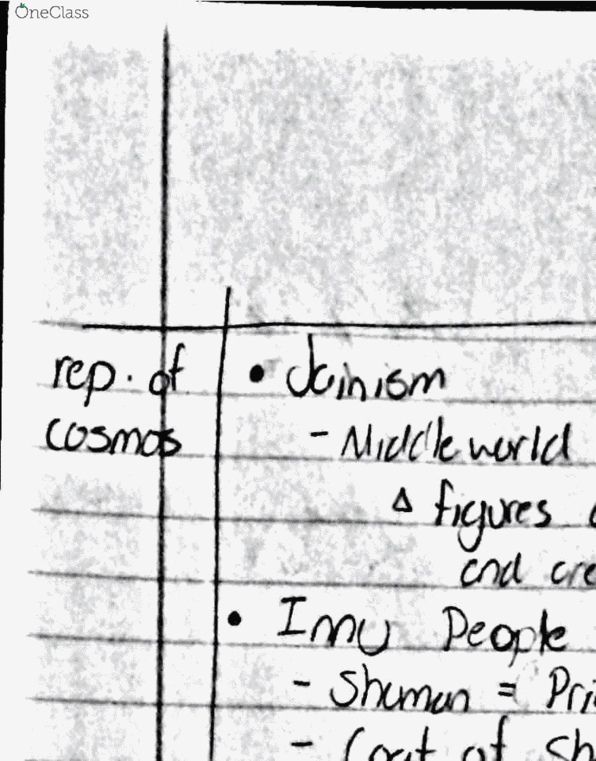 OneClass
rep. of
cosmos
• Jainism
- Middle world
Δ figures
and cre
• Innu People
- Shaman = Pri
- Coat of Sh